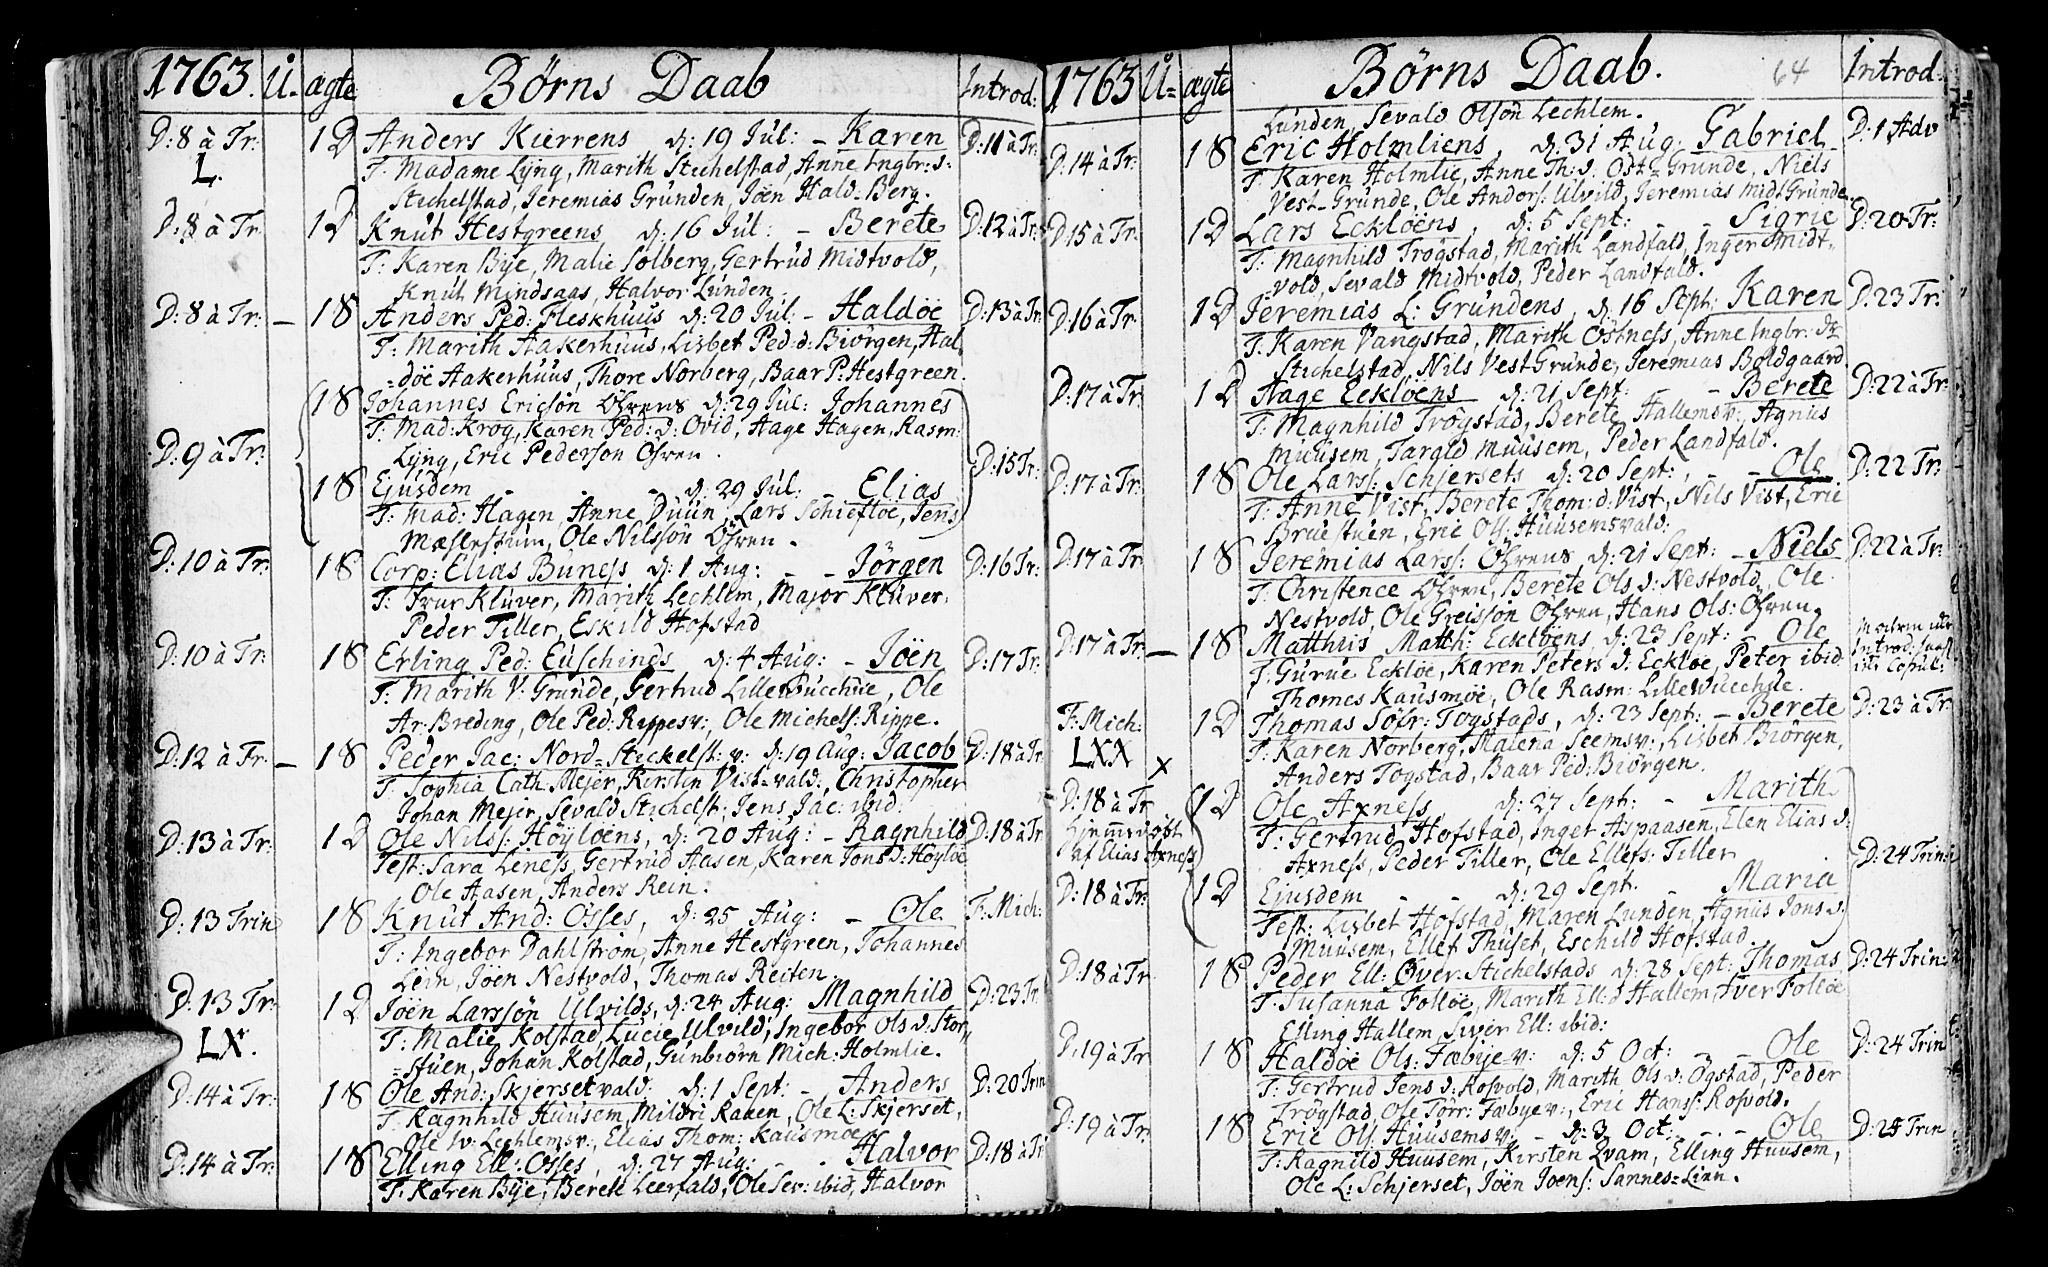 1763. U- ægte Børns Daab Introd:
D: 8 à Tr: 1D Anders Kierrens d: 19 Jul: - Karen D: 11 à Tr:
L. T: Madame Lÿng, Marith Stichelstad, Anne Ingbr: d:
Stichelstad, Jeremias Grunden, Jöen Hald-Berg.
D: 8 à Tr. 1D Knut Hestgreens d: 16 Jul: - Berete D: 12 à Tr:
T: Karen Bÿe, Malie Solberg, Gertrud Midtvold,
Knut Mindsaas, Halvor Lunden.
D: 8 à Tr: - 1S Anders Ped: Fleskhuus d: 20 Jul: - Haldöe D: 13 à Tr:
T: Marith Aakerhuus, Lisbet Ped: d: Biörgen, Hal
=döe Aakerhuus, Thore Norberg, Baar P: Hestgreen.
1S Johannes Ericsön Öhrens d: 29 Jul: Johannes
D: 9 à Tr: T: Mad: Krog, Karen Ped: d: Ovid, Aage Hagen, Rasm:
Lÿng, Eric Pederson Öhren. D: 15 Tr:
1S Ejusdem - - d: 29 Jul: Elias
T: Mad: Hagen, Anne Duun, Lars Schiefloe, Jens
Mæhlestum, Ole Nilssön Öhren.
D: 10 à Tr: 1S Corp: Elias Buness d: 1 Aug: - - Jörgen D: 16 Tr:
T: Frur Klüver, Marith Lechlem, Major Klüver,
Peder Tiller, Eskild Hofstad
D: 10 à Tr: 1S Erling Ped: Euschinds d: 4 Aug: - Jöen D: 17 Tr:
T: Marith V: Grunde, Gertrud Lille Vucchüe, Ole
Ar: Breding, Ole Ped: Rippesv:, Ole Michels: Rippe.
D: 12 à Tr. - 1S Peder Jac: Nord=Stickelst: v: d: 19 Aug: Jacob D: 18 à Tr
T: Sophia Cath. Mejer, Kirstin Vist=vald:, Christopher
Johan Mejer, Sevald Stichelst:, Jens Jac: ibid:
D: 13 à Tr: 1D Ole Nils: Höÿlöens, d: 20 Aug: - Ragnhild D: 18 à Tr
Test: Sara Leness, Gertrud Aasen, Karen Jons d: Höyloe
Ole Aasen, Anders Rein.
D: 13 Trin 1S Knut And: Osses, d: 25 Aug: - Ole F: Mich:
T: Ingebor Dahlström, Anne Hestgreen, Johannes
Lein, Jöen Nestvold, Thomas Reiten.
D: 13 Tr: 1D Jöen Larssön Ulvilds, d: 24 Aug: Magnhild D: 23 Tr
LX. T: Malie Kolstad, Lucie Ulvild, Ingebor Ols d: Stor
=stuen, Johan Kolstad, Gunbiörn Mich: Holmlie.
D: 14 à Tr: 1S Ole And: Skjersetvald: d: 1 Sept: - Anders D: 20 Trin
T: Ragnhild Huusem, Mildri Raaen, Ole L: Skjerset,
Ole Iv: Lechlemsv:, Elias Thom: Kausmoe
D: 14 à Tr: 1S Elling Ell: Osses, d: 27 Aug: - - Halvor D: 18 à Tr
T: Karen Bÿe, Berete Leerfald, Ole Sev: ibid, Halvor
1763 U= ægte Børns Daab. 64 Introd:
Lunden, Sevald Olson Lechlem.
D: 14 à Tr: 1S Eric Holmliens, d: 31 Aug: Gabriel D: 1 Adv
T: Karen Holmlie, Anne Th: d: Ost=Grunde, Niels
Vest-Grunde, Ole Anders: Ulvild, Jeremias MidtGrunde
D: 15 à Tr: 1D Lars Ecklöens, d: 5 Sept: - Sigrie D: 20 Tr:
T: Magnhild Trögstad, Marith Landfald, Inger Midt-
vold, Sevald Midtvold, Peder Landfald.
D: 16 à Tr: 1D Jeremias L: Grundens, d: 16 Sept: Karen D: 23 Tr:
T: Karen Vangstad, Marith Ostness, Anne Ingbr: d:
Stichelstad, Nils Vest Grunde, Jeremias Boldgaard
D: 17 à Tr: 1D Aage Ecklöens d: 21 Sept: - Berete D: 22 à Tr:
T: Magnhild Trögstad, Berete Hallemsv:, Agnus
Muusem, Targld Muusem, Peder Landfald.
D: 17 à Tr: 1S Ole Lars: Schjersets d: 20 Sept:, - - Ole D: 22 Tr:
T: Anne Vist, Berete Thom: d: Vist, Nils Vist, Eric
Bruestuen, Eric Ols: Huusemsvald:
D: 17 à Tr: 1S Jeremias Lars: Öhrens d: 21 Sept: - Niels D: 22 à Tr:
T: Christence Öhren, Berete Ols d: Nestvold, Ole
Nestvold, Ole Greisson Öhren, Hans Ols: Öhren.
D: 17 à Tr: - 1S Matthis Matth: Ecklöens, d: 23 Sept: Ole
T: Gurue Eckloe, Karen Peters d: Eckloe, Peter ibid:
Thomes Kausmöe, Ole Rasm: Lille Vucchüe.
F: Mich: 1D Thomas Sofr: Togstads, d: 23 Sept: - Berete D: 23 à Tr
LXX T: Karen Norberg, Malena Seemsv:, Lisbet Biörgen,
x Anders Togstad, Baar Ped: Biörgen.
D: 18 à Tr 1D Ole Axness, d: 27 Sept: - Marith
Hjemmedöbt T: Gertrud Hofstad, Inger Aspaasen, Elen Elias d:
af Elias Axness Axness, Peder Tiller, Ole Ellefs: Tiller D: 24 Trin:
D: 18 à Tr: 1D Ejusdem - - d: 29 Sept. - Maria
Test: Lisbet Hofstad, Maren Lunden, Agnus Jons d:
Muusem, Ellef Thuset, Eschild Hofstad.
D: 18 à Tr 1S Peder Ell: Over=Stichelstads d: 28 Sept: Thomas D: 24 Trin:
T: Susanna Folloe, Marith Ell: d: Hallem, Iver Folloe
Elling Hallem, Siver Ell: ibid:
D: 19 à Tr 1S Haldoe Ols: Fæbÿev: d: 5 Oct: - - Ole D: 24 Trin
T: Gertrud Jens d: Rosvold, Marith Ols d: Ögstad, Peder
Trögstad, Ole Törr: Fæbyev:, Eric Hans: Rosvold.
D: 19 à Tr: 1S Eric Ols: Huusemsv: - d: 3 Oct: - - Ole D: 25 Trin
T: Ragnild Huusem, Kirsten Qvam, Elling Huusem,
Ole L: Schjerset, Jöen Joens: Sannes=Linn.